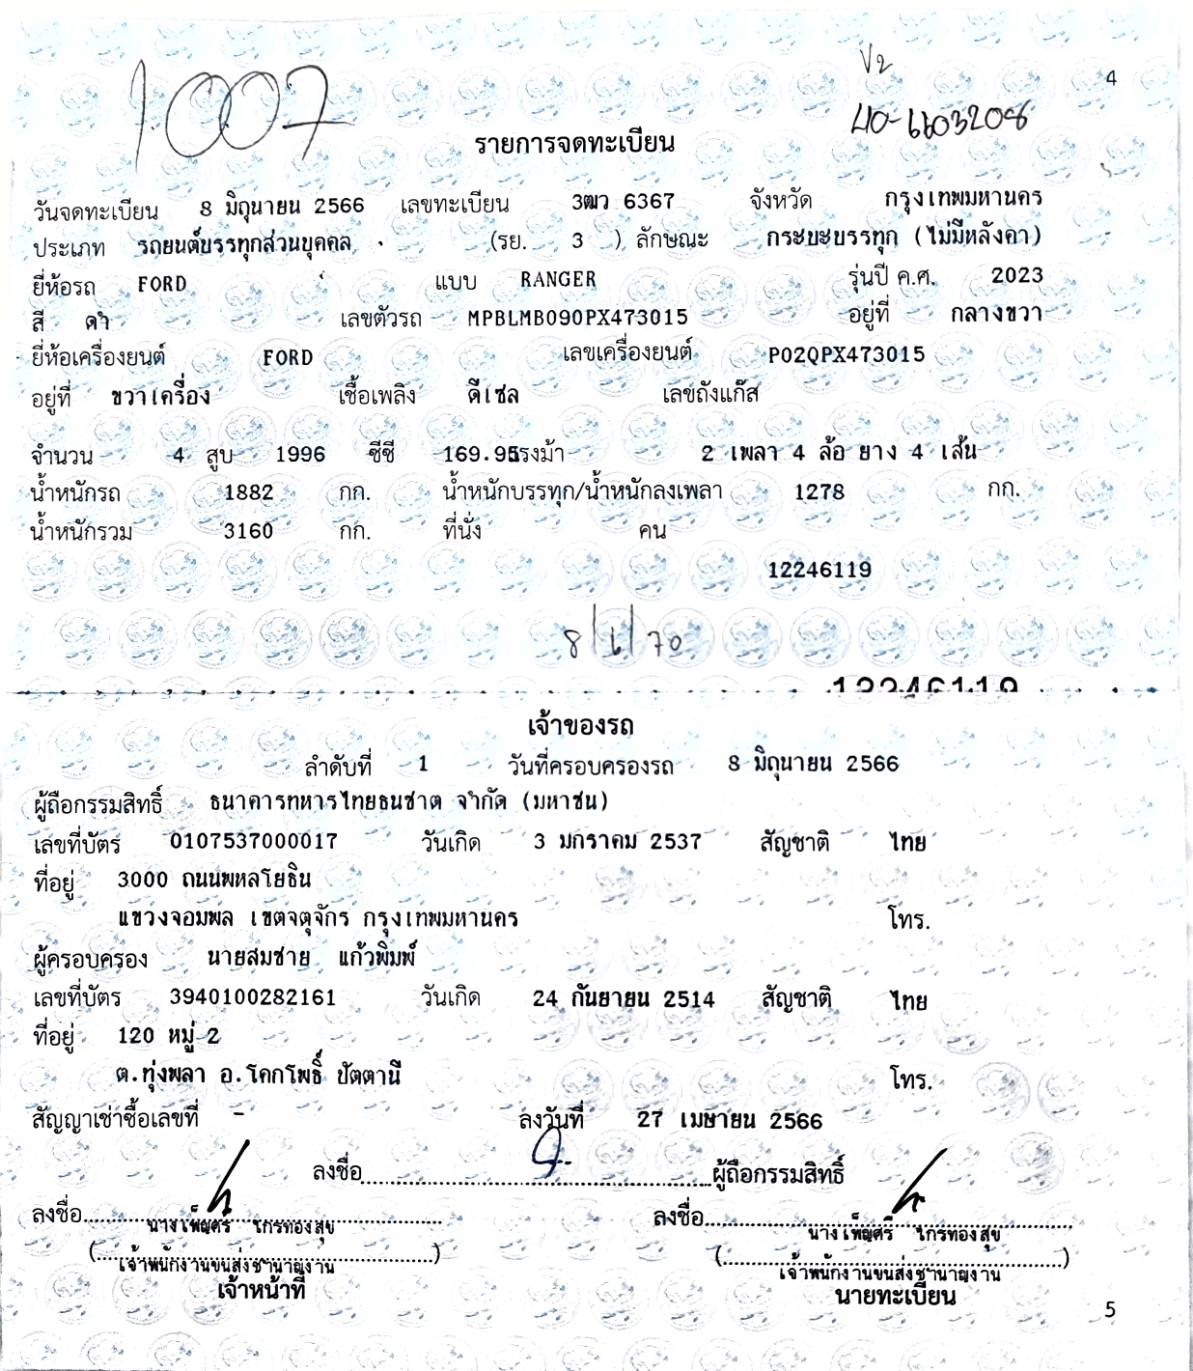 1007
V2
40-6603208
4
รายการจดทะเบียน
วันจดทะเบียน 8 มิถุนายน 2566 เลขทะเบียน 3ฒว 6367 จังหวัด กรุงเทพมหานคร
ประเภท รถยนต์บรรทุกส่วนบุคคล (รย. 3 ) ลักษณะ กระบะบรรทุก (ไม่มีหลังคา)
ยี่ห้อรถ FORD แบบ RANGER รุ่นปี ค.ศ. 2023
สี ดำ เลขตัวรถ MPBLMB090PX473015 อยู่ที่ กลางขวา
ยี่ห้อเครื่องยนต์ FORD เลขเครื่องยนต์ P02QPX473015
อยู่ที่ ขวาเครื่อง เชื้อเพลิง ดีเซล เลขถังแก๊ส
จำนวน 4 สูบ 1996 ซีซี 169.95 แรงม้า 2 เพลา 4 ล้อ ยาง 4 เส้น
น้ำหนักรถ 1882 กก. น้ำหนักบรรทุก/น้ำหนักลงเพลา 1278 กก.
น้ำหนักรวม 3160 กก. ที่นั่ง คน
12246119
8/6/70
12246119
เจ้าของรถ
ลำดับที่ 1 วันที่ครอบครองรถ 8 มิถุนายน 2566
ผู้ถือกรรมสิทธิ์ ธนาคารทหารไทยธนชาต จำกัด (มหาชน)
เลขที่บัตร 0107537000017 วันเกิด 3 มกราคม 2537 สัญชาติ ไทย
ที่อยู่ 3000 ถนนพหลโยธิน
แขวงจอมพล เขตจตุจักร กรุงเทพมหานคร โทร.
ผู้ครอบครอง นายสมชาย แก้วพิมพ์
เลขที่บัตร 3940100282161 วันเกิด 24 กันยายน 2514 สัญชาติ ไทย
ที่อยู่ 120 หมู่ 2
ต.ทุ่งพลา อ.โคกโพธิ์ ปัตตานี โทร.
สัญญาเช่าซื้อเลขที่ - ลงวันที่ 27 เมษายน 2566
ลงชื่อ ผู้ถือกรรมสิทธิ์
ลงชื่อ ลงชื่อ
นางเพ็ญศรี ไกรทองสุข นางเพ็ญศรี ไกรทองสุข
( ) ( )
เจ้าพนักงานขนส่งชำนาญงาน เจ้าพนักงานขนส่งชำนาญงาน
เจ้าหน้าที่ นายทะเบียน
5